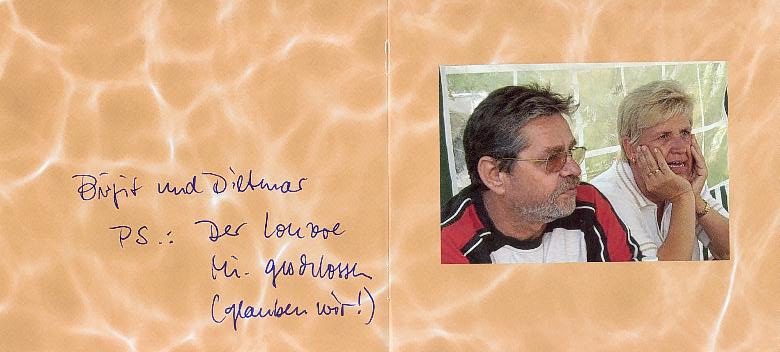 Birgit und Dietmar
PS.: Der Louvre
Mi. geschlossen
(glauben wir!)